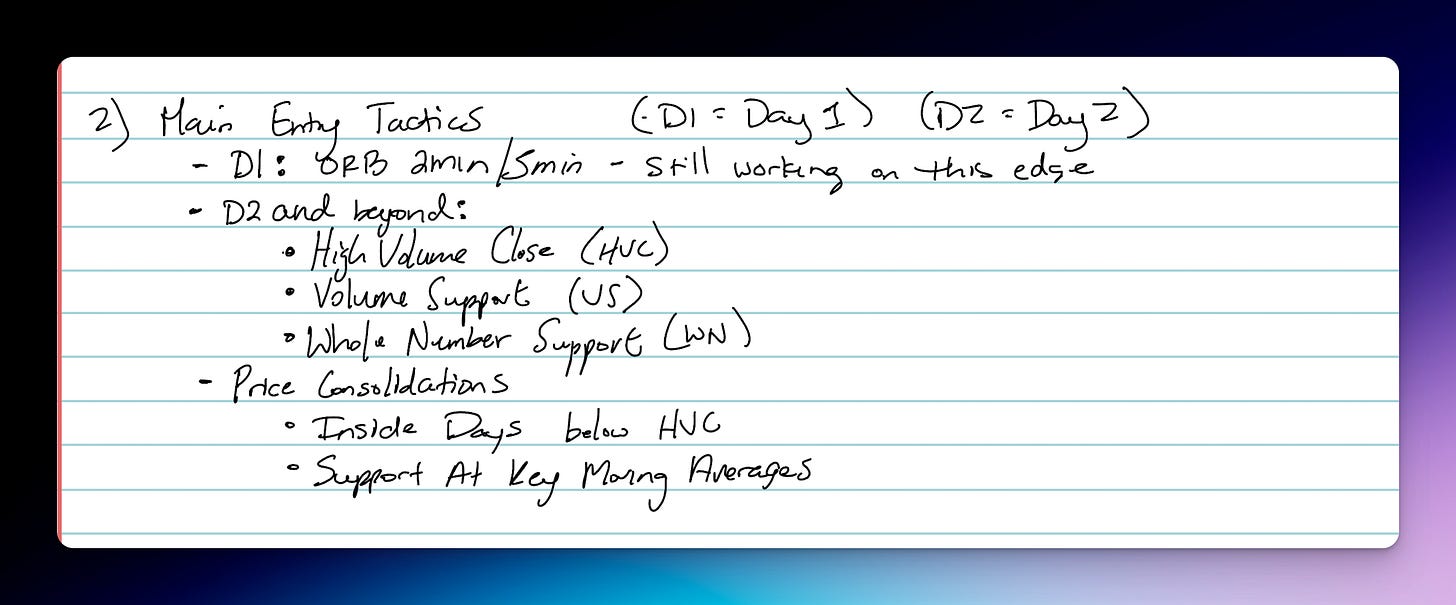 2) Main Entry Tactics (D1 = Day 1) (D2 = Day 2)
- D1: ORB 2min/5min - still working on this edge
- D2 and beyond:
• High Volume Close (HVC)
• Volume Support (VS)
• Whole Number Support (WN)
- Price Consolidations
• Inside Days below HVC
• Support At Key Moving Averages